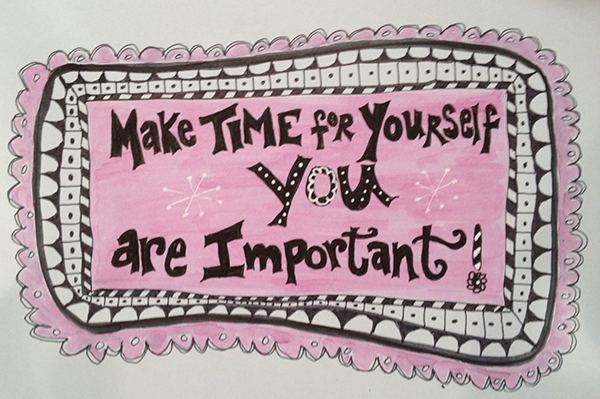 Make TIME for Yourself
YOU
are Important!